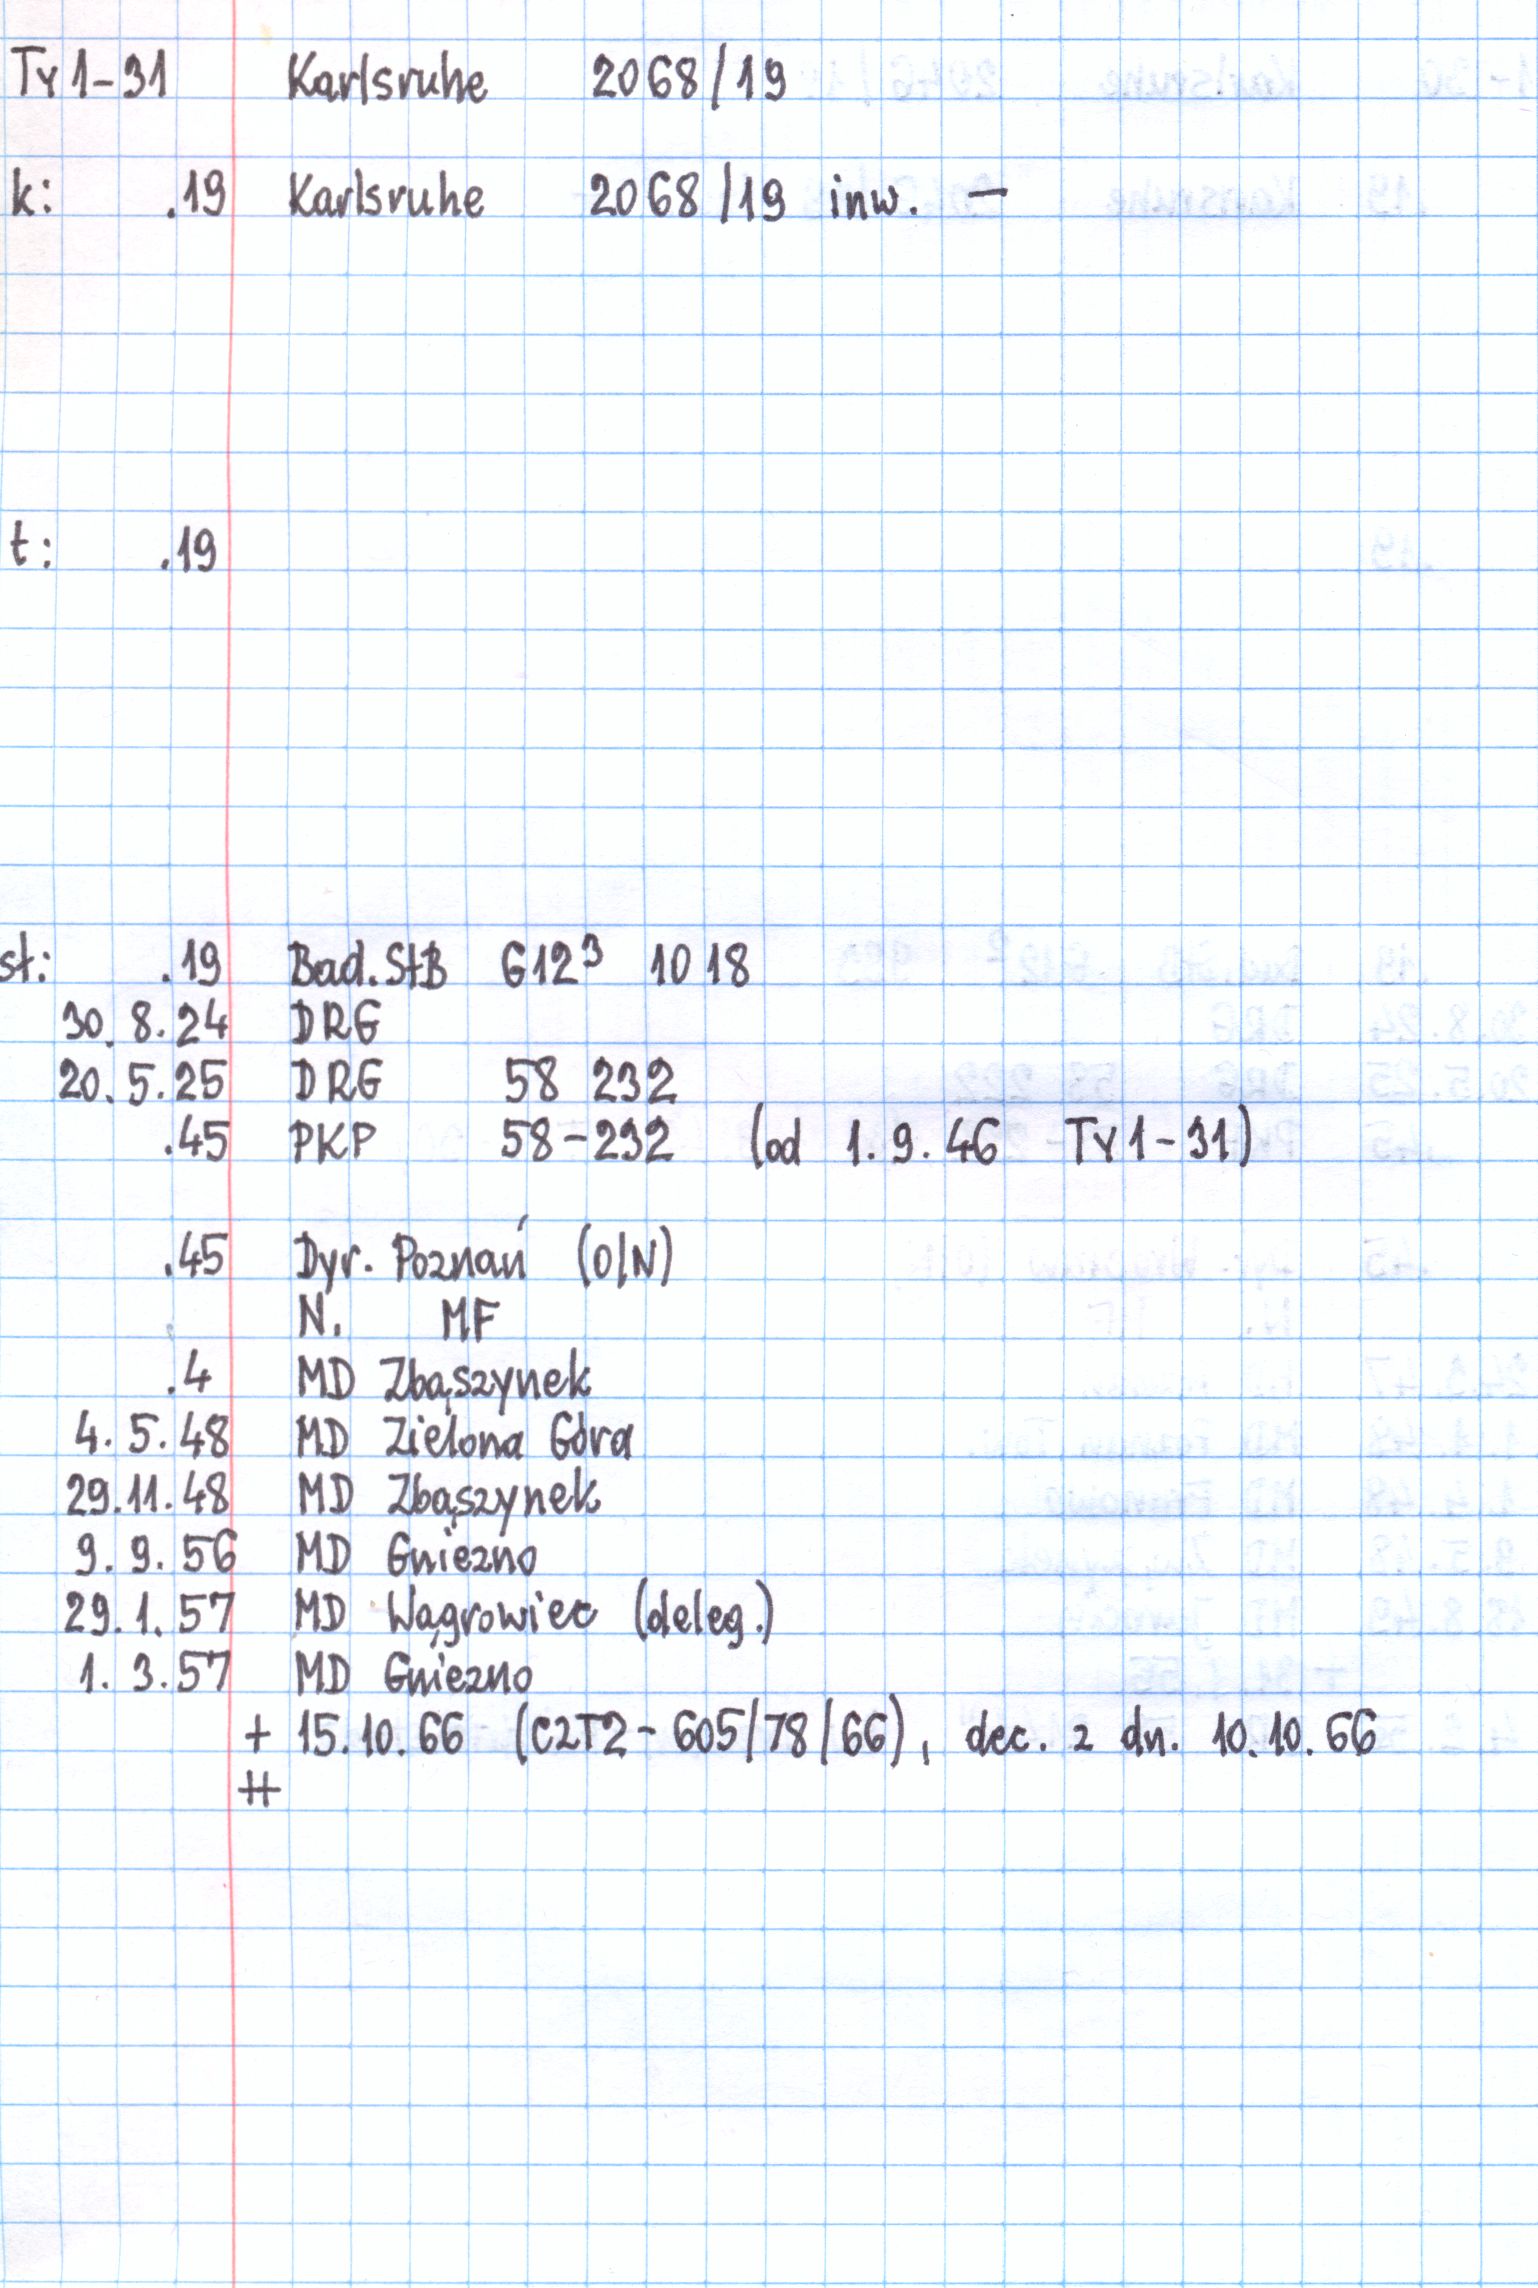 Ty1-31 Karlsruhe 2068/19
k: .19 Karlsruhe 2068/19 inw. —
t: .19
st: .19 Bad.StB G12³ 1018
30.8.24 DRG
20.5.25 DRG 58 232
.45 PKP 58-232 (od 1.9.46 Ty1-31)
.45 Dyr. Poznań (O/N)
. N. MF
.4 MD Zbąszynek
4.5.48 MD Zielona Góra
29.11.48 MD Zbąszynek
9.9.56 MD Gniezno
29.1.57 MD Wągrowiec (deleg.)
1.3.57 MD Gniezno
+ 15.10.66 (C2T2-605/78/66), dec. z dn. 10.10.66
++